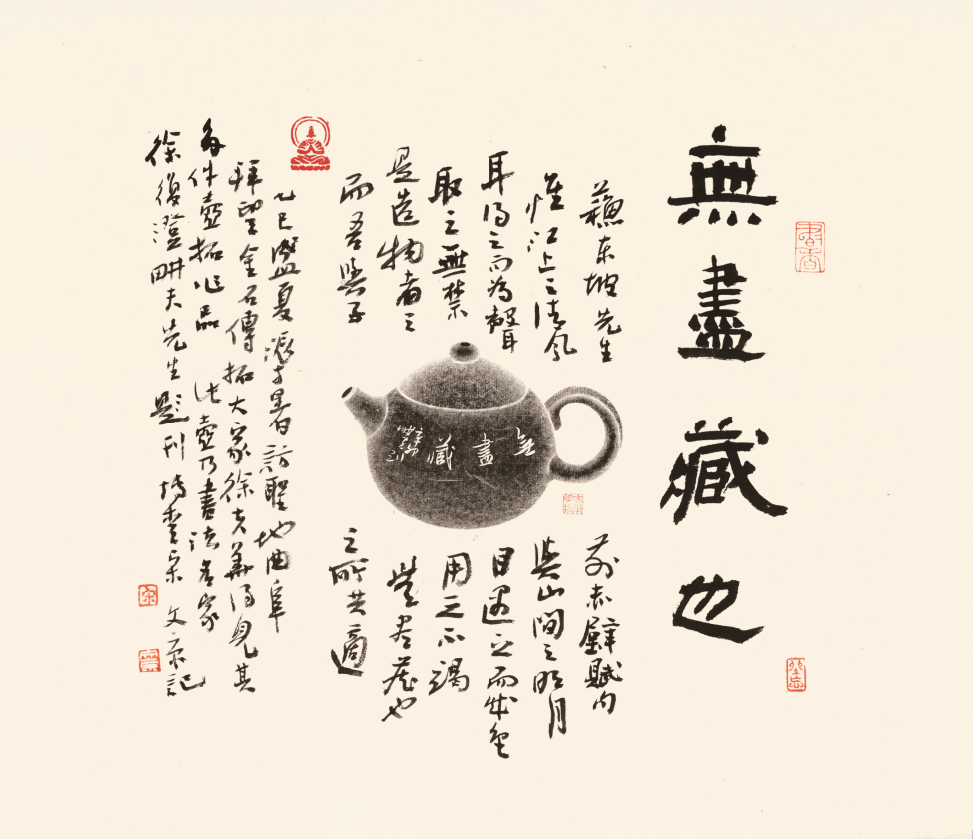 無盡藏也
蘓东坡先生 前赤壁賦内
惟江上之清风 與山間之明月
耳得之而为聲 目遇之而成色
取之無禁 用之不竭
是造物者之 無尽藏也
而吾與子 之所共適
乙巳 夏 暑訪聖地曲阜
拜望金石傳拓大家徐 美得見其
多件壺拓作品 此壺乃書法名家
徐復澄畊夫先生題刊 文京記
無盡藏